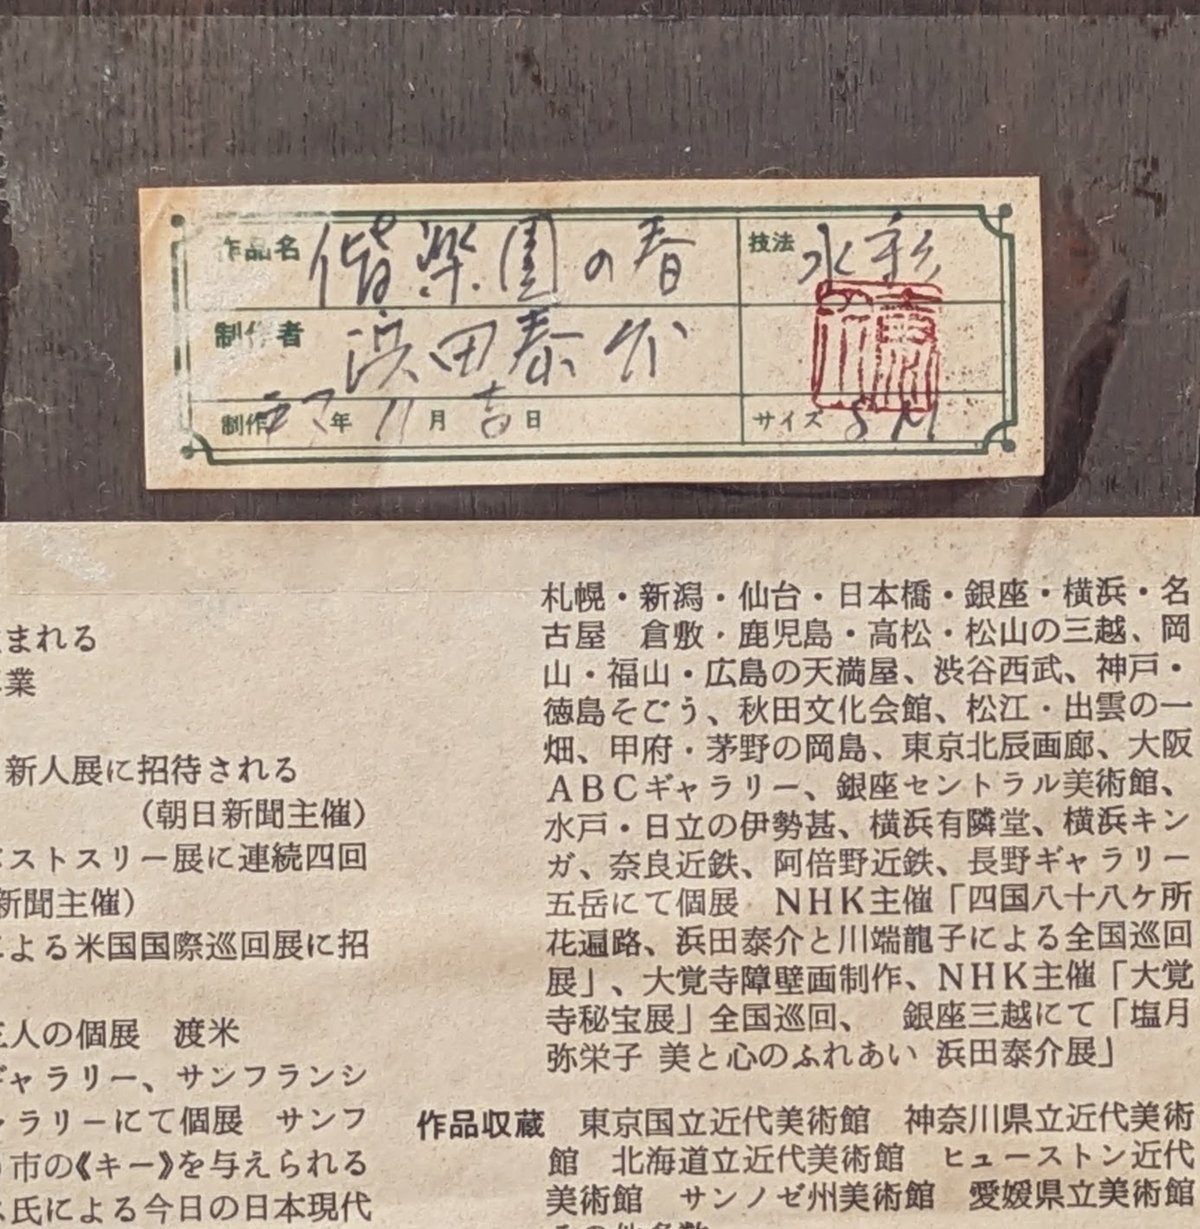 作品名 偕楽園の春 技法 水彩
制作者 浜田泰介
制作 年 11月 吉日 サイズ SM
まれる
業
新人展に招待される
(朝日新聞主催)
ストスリー展に連続四回
新聞主催)
よる米国国際巡回展に招
三人の個展 渡米
ギャラリー、サンフランシ
ャラリーにて個展 サンフ
市の《キー》を与えられる
氏による今日の日本現代
札幌・新潟・仙台・日本橋・銀座・横浜・名
古屋 倉敷・鹿児島・高松・松山の三越、岡
山・福山・広島の天満屋、渋谷西武、神戸・
徳島そごう、秋田文化会館、松江・出雲の一
畑、甲府・茅野の岡島、東京北辰画廊、大阪
ABCギャラリー、銀座セントラル美術館、
水戸・日立の伊勢甚、横浜有隣堂、横浜キン
ガ、奈良近鉄、阿倍野近鉄、長野ギャラリー
五岳にて個展 NHK主催「四国八十八ケ所
花遍路、浜田泰介と川端龍子による全国巡回
展」、大覚寺障壁画制作、NHK主催「大覚
寺秘宝展」全国巡回、 銀座三越にて「塩月
弥栄子 美と心のふれあい 浜田泰介展」
作品収蔵 東京国立近代美術館 神奈川県立近代美術
館 北海道立近代美術館 ヒューストン近代
美術館 サンノゼ州美術館 愛媛県立美術館